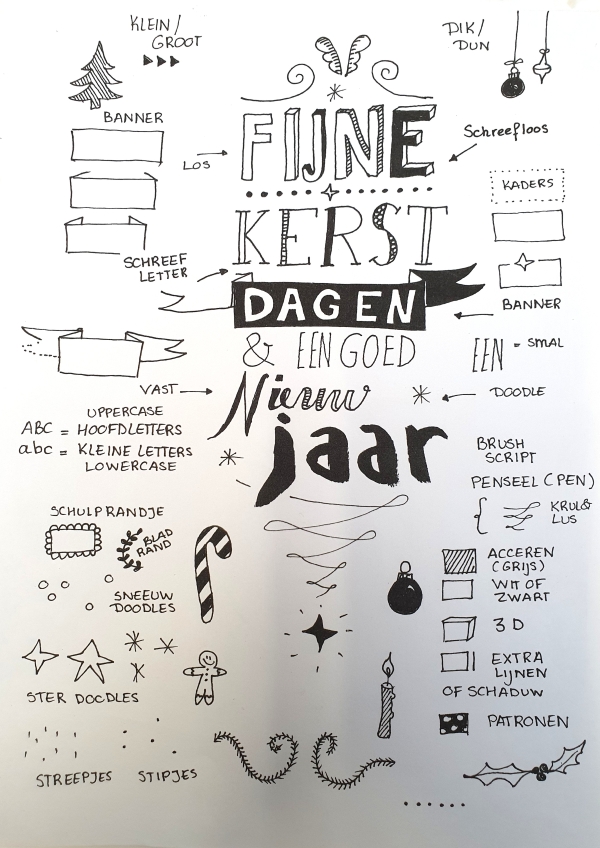 KLEIN/
GROOT
DIK/
DUN
BANNER
FIJNE
LOS
Schreefloos
KADERS
KERST
SCHREEF
LETTER
DAGEN
BANNER
& EEN GOED
EEN = SMAL
VAST
Nieuw
DOODLE
UPPERCASE
ABC = HOOFDLETTERS
abc = KLEINE LETTERS
LOWERCASE
jaar
BRUSH
SCRIPT
PENSEEL (PEN)
KRUL&
LUS
SCHULPRANDJE
BLAD
RAND
SNEEUW
DOODLES
ACCEREN
(GRIJS)
WIT OF
ZWART
3D
EXTRA
LIJNEN
OF SCHADUW
STER DOODLES
PATRONEN
STREEPJES
STIPJES